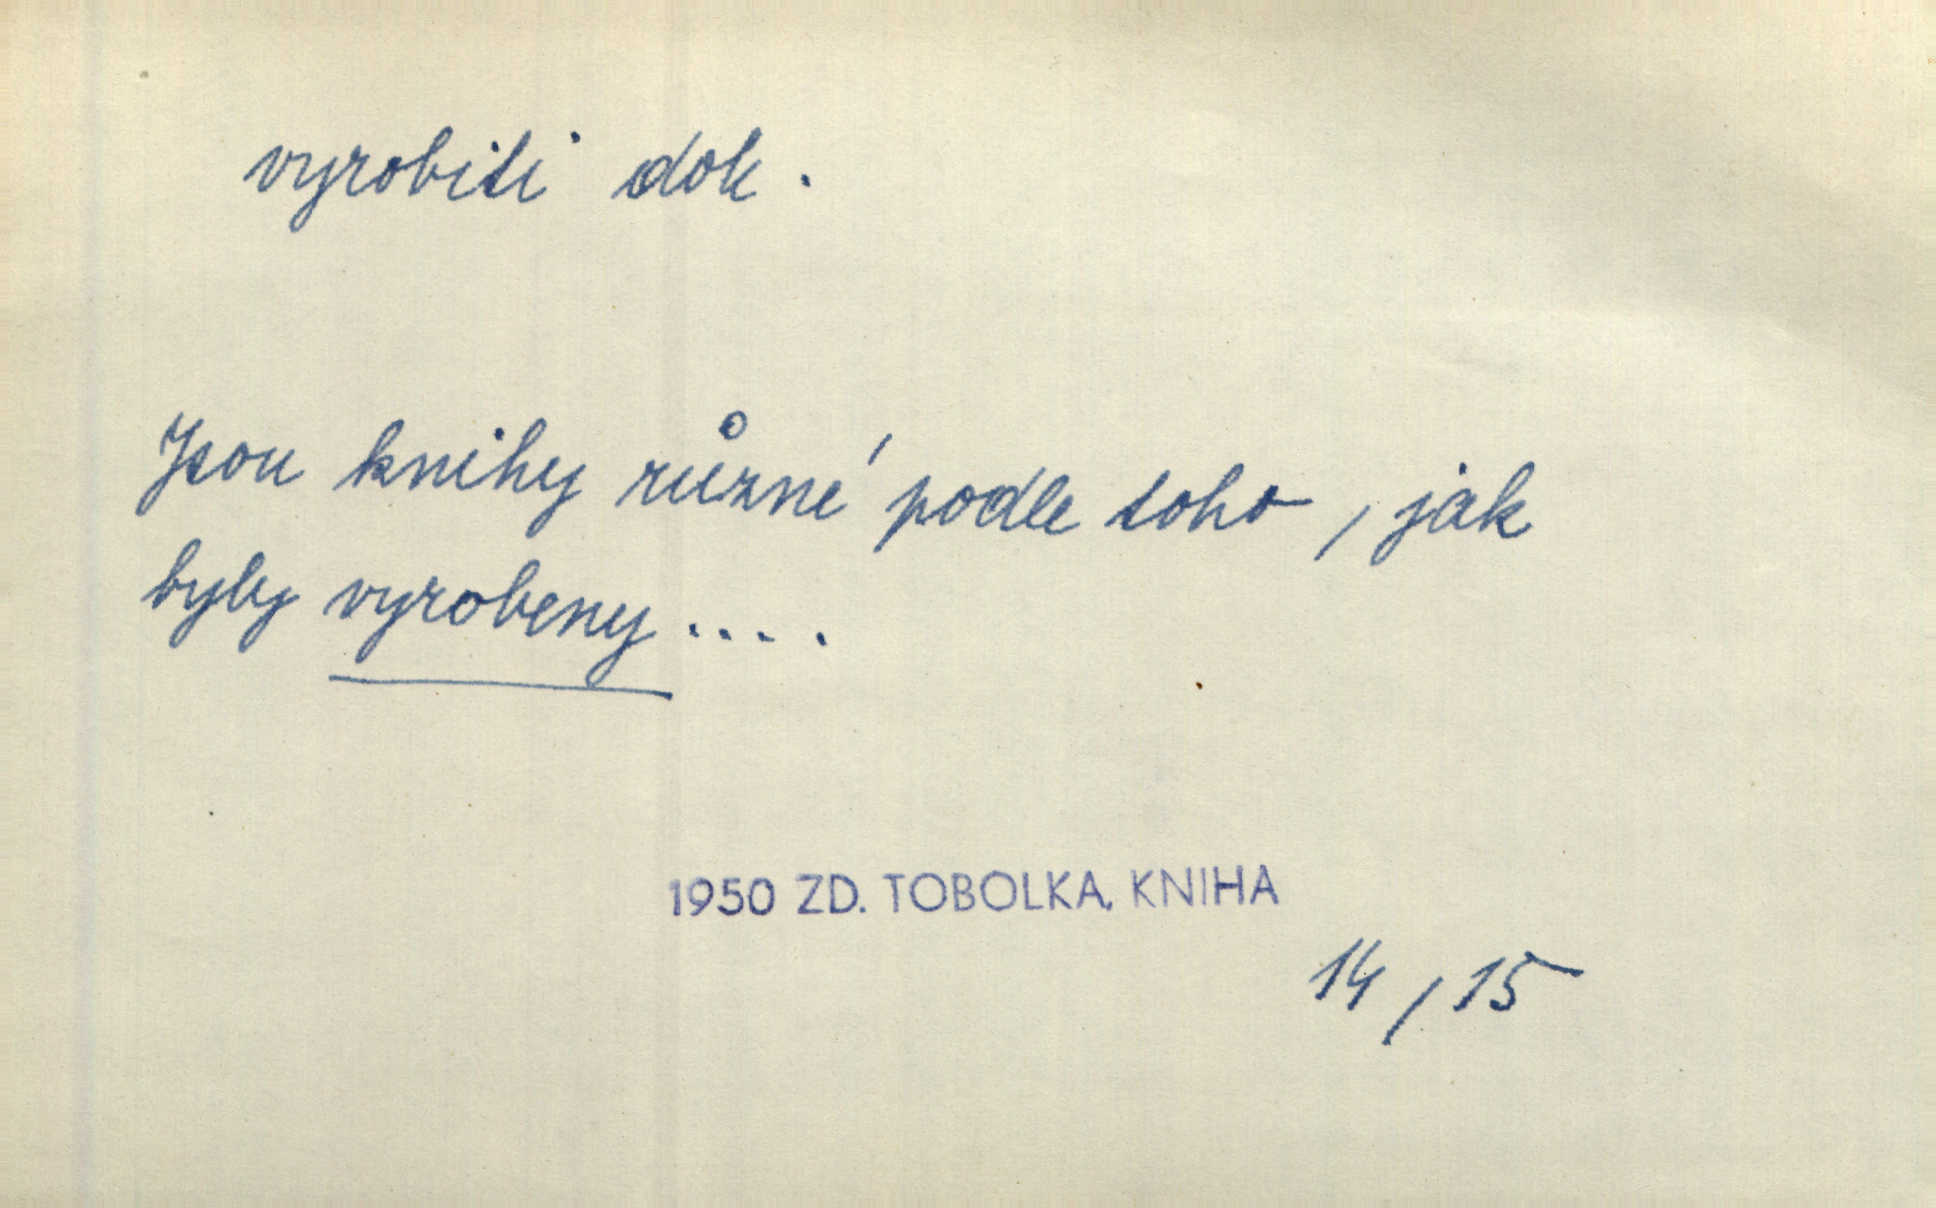 vyrobiti dok.
Jsou knihy různé podle toho, jak
byly vyrobeny....
1950 ZD. TOBOLKA, KNIHA
14/15